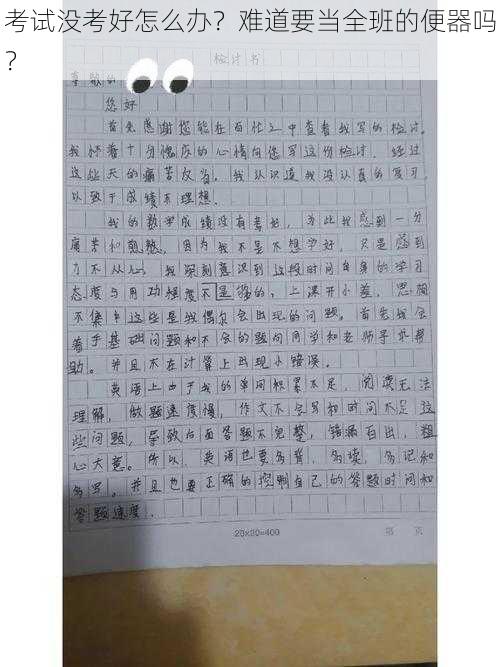 考试没考好怎么办？难道要当全班的便器吗
？
检讨书
尊敬的
您好
首先感谢您能在百忙之中查看我写的检讨。
我怀着十分愧疚的心情向您写这份检讨，经过
这些天的痛苦反省，我认识道我没认真的复习，
以致于成绩不理想。
我的数学成绩没有考好，为此我感到一分
痛苦和，因为我不是不想学好，只是感到
力不从心，我深刻意识到这段时间自身的学习
态度与用功程度不是够的，上课开小差，思想
不集中这些是我偶尔会出现的问题。首先我会
着手基础问题和不会的题向同学和老师寻求帮
助。并且不在计算上出现小错误。
英语上由于我的单词积累不足，阅读无法
理解，做题速度慢，作文不会写和时间不足这
些问题，导致卷面答题不完整，错漏百出，粗
心大意。所以，英语也要多背，多读，多记和
多写。并且也要正确的控制自己的答题时间和
答题速度．
20×20=400
第 页